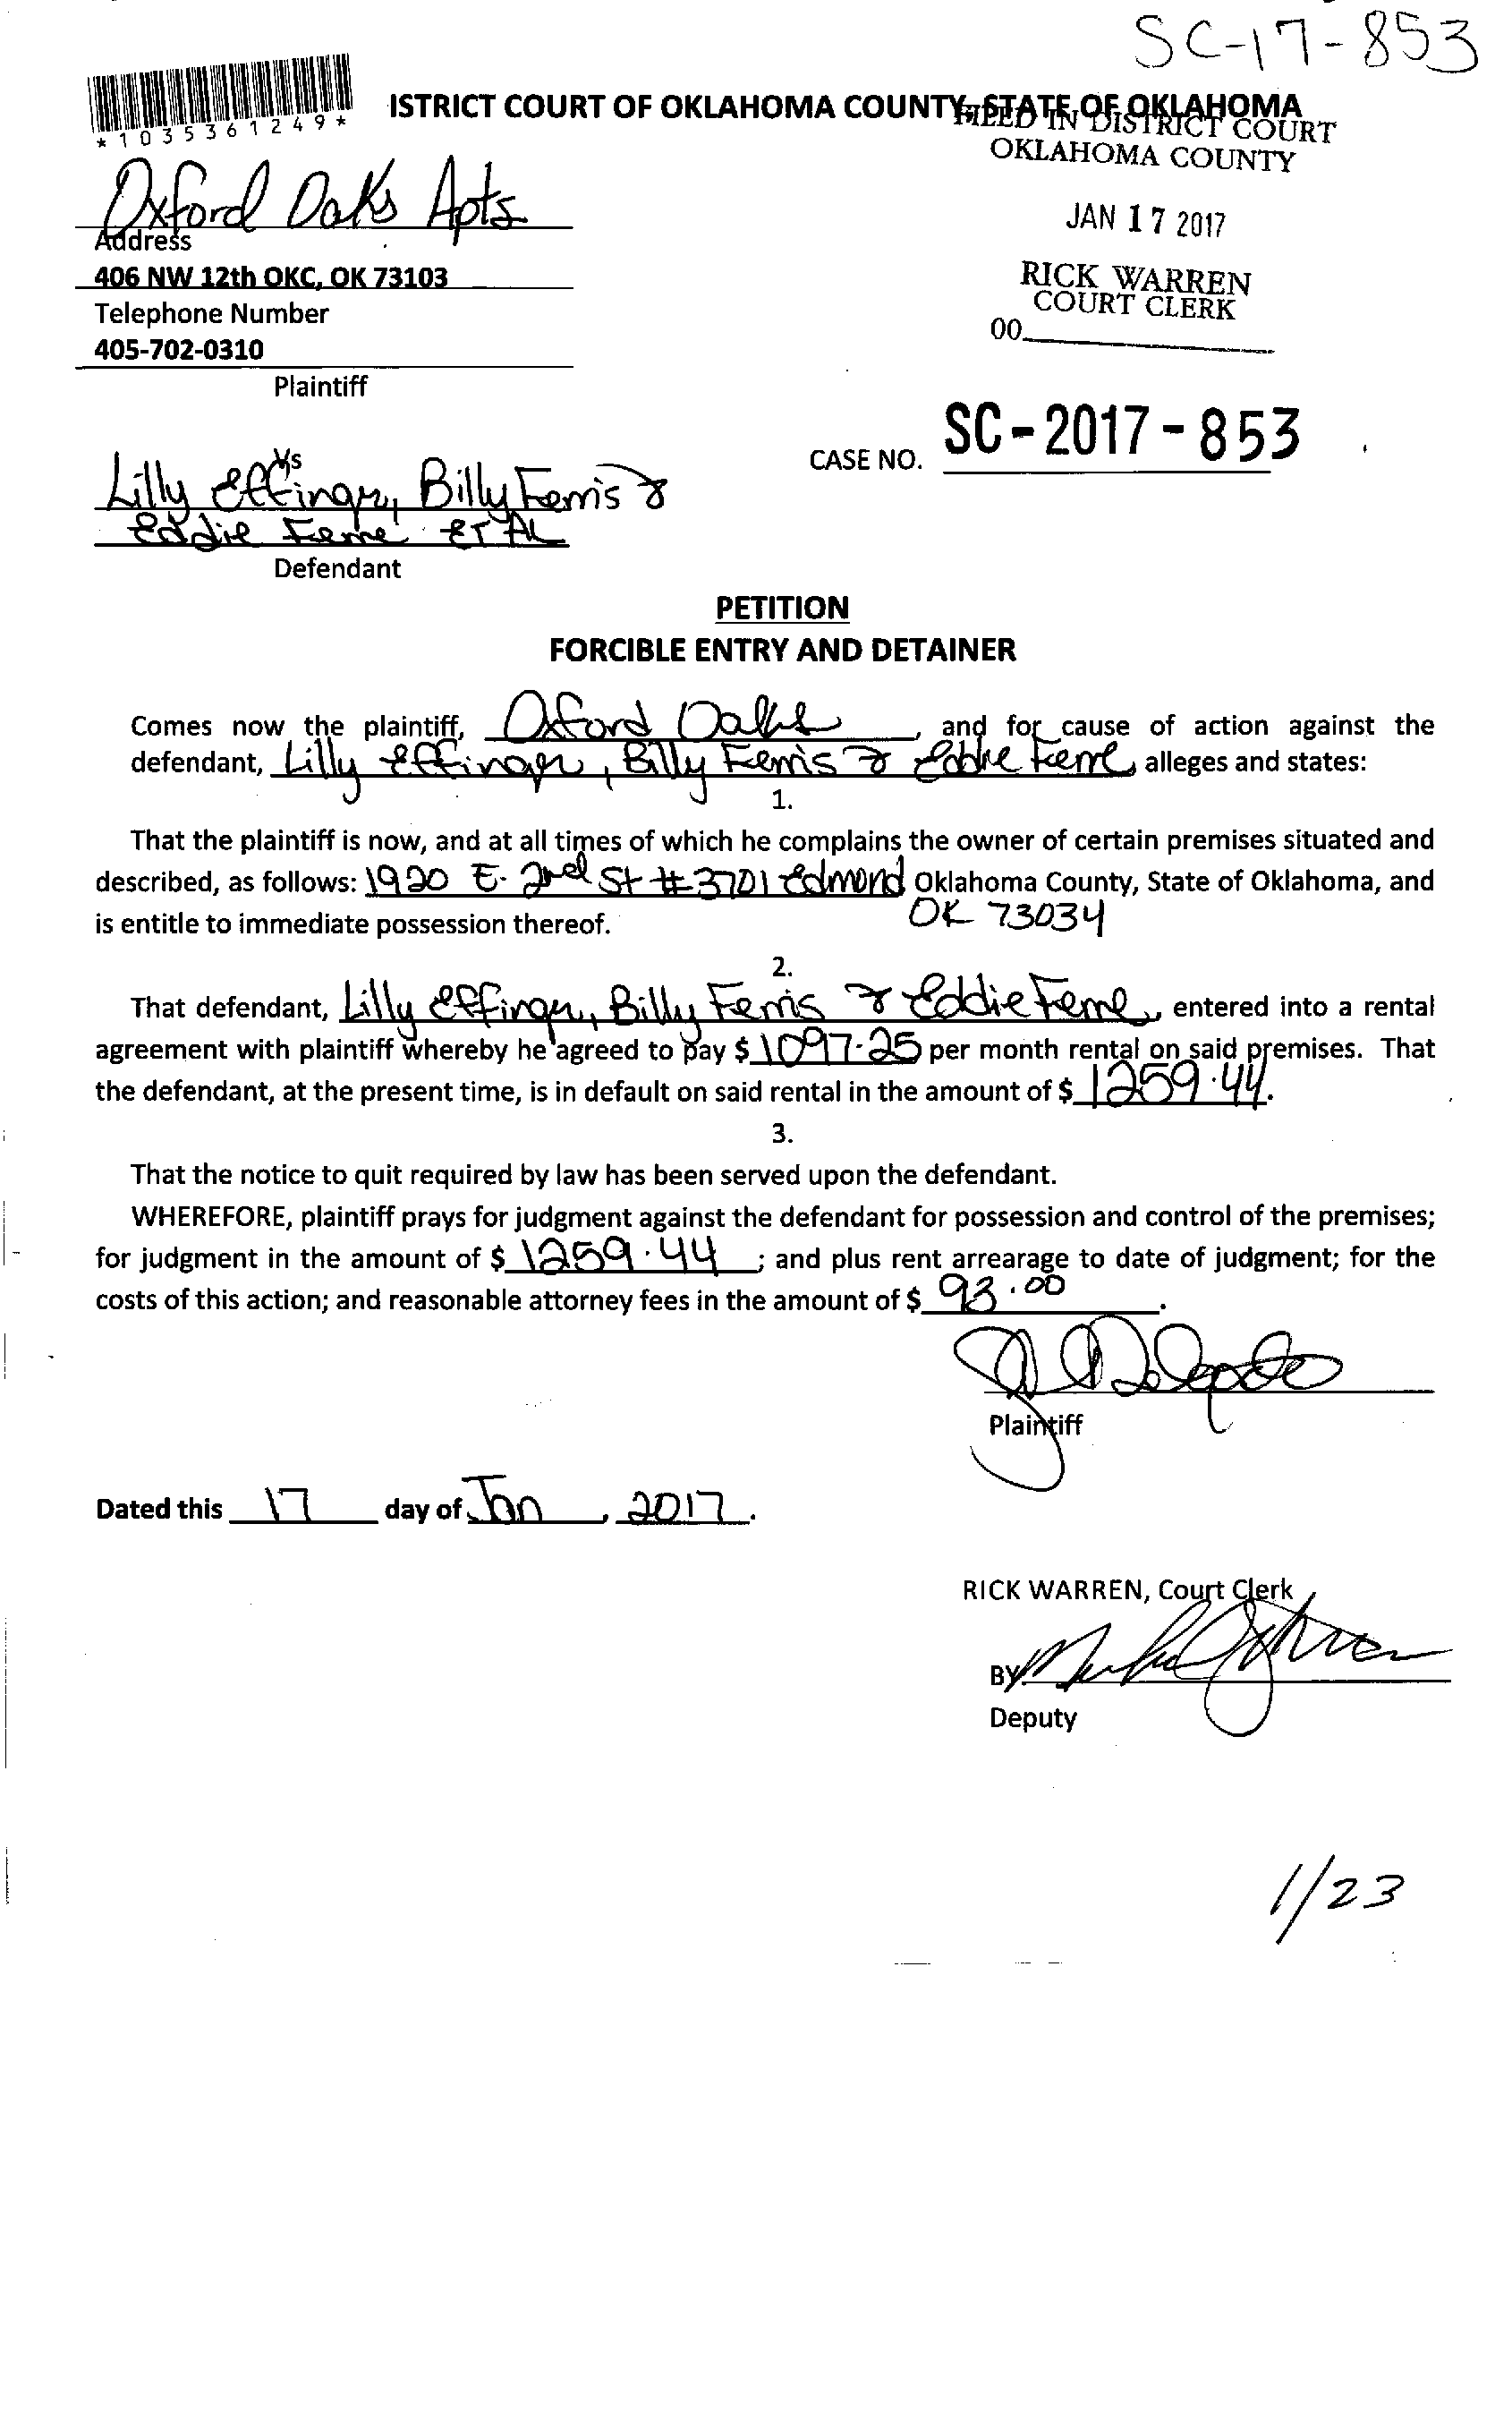 SC-17-853
*1035361249*
ISTRICT COURT OF OKLAHOMA COUNTY, STATE OF OKLAHOMA
FILED IN DISTRICT COURT
OKLAHOMA COUNTY
JAN 17 2017
RICK WARREN
COURT CLERK
00
Oxford Oaks Apts
Address
406 NW 12th OKC, OK 73103
Telephone Number
405-702-0310
Plaintiff
CASE NO. SC-2017-853
Vs
Lilly Effinger, Billy Ferris &
Eddie ET AL
Defendant
PETITION
FORCIBLE ENTRY AND DETAINER
Comes now the plaintiff, Oxford Oaks, and for cause of action against the
defendant, Lilly Effinger, Billy Ferris & Eddie alleges and states:
1.
That the plaintiff is now, and at all times of which he complains the owner of certain premises situated and
described, as follows: 1920 E. 2nd St #3701 Edmond Oklahoma County, State of Oklahoma, and
OK 73034
is entitle to immediate possession thereof.
2.
That defendant, Lilly Effinger, Billy Ferris & Eddie, entered into a rental
agreement with plaintiff whereby he agreed to pay $ 1097.25 per month rental on said premises. That
the defendant, at the present time, is in default on said rental in the amount of $ 1259.44.
3.
That the notice to quit required by law has been served upon the defendant.
WHEREFORE, plaintiff prays for judgment against the defendant for possession and control of the premises;
for judgment in the amount of $ 1259.44; and plus rent arrearage to date of judgment; for the
costs of this action; and reasonable attorney fees in the amount of $ 93.00.
Plaintiff
Dated this 17 day of Jan, 2017.
RICK WARREN, Court Clerk
BY
Deputy
1/23